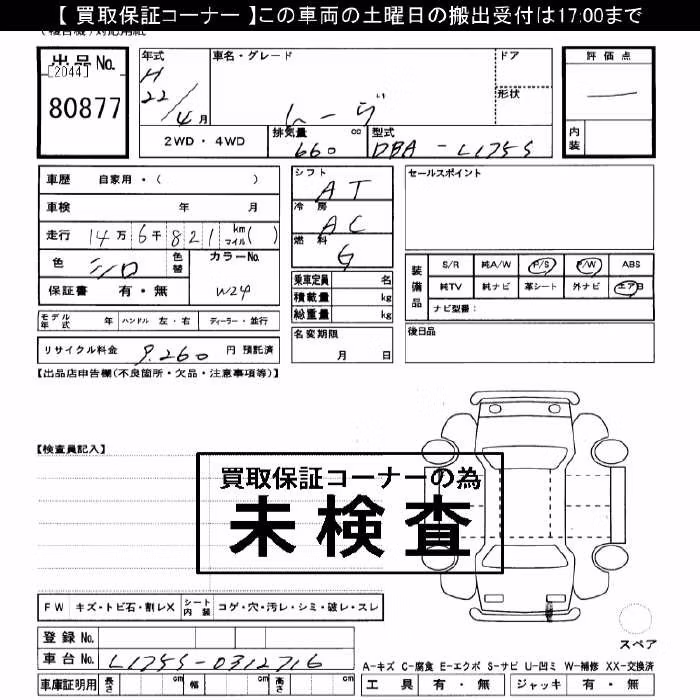 【 買取保証コーナー 】この車両の土曜日の搬出受付は17:00まで
出品No.
[2044]
80877
年式
H
22/4月
車名・グレード
ムーヴ
ドア
形状
評価点
内装
2WD・4WD
排気量
660 cc
型式
DBA-L175S
車歴 自家用・( )
車検 年 月
走行 14万6千821 km マイル( )
色 シロ 色替
カラーNo.
W24
保証書 有・無
シフト
AT
冷房
AC
燃料
G
セールスポイント
乗車定員 名
積載量 kg
総重量 kg
装備品
S/R 純A/W P/S P/W ABS
純TV 純ナビ 革シート 外ナビ エアB
ナビ型番:
モデル年式 年 ハンドル 左・右 ディーラー・並行
名変期限
月 日
後日品
リサイクル料金 9,260 円 預託済
【出品店申告欄(不良箇所・欠品・注意事項等)】
【検査員記入】
買取保証コーナーの為
未検査
FW キズ・トビ石・割レX シート内装 コゲ・穴・汚レ・シミ・破レ・スレ
スペア
登録No.
車台No. L175S-0312716
A-キズ C-腐食 E-エクボ S-サビ U-凹ミ W-補修 XX-交換済
車庫証明用 長さ cm 幅 cm 高さ cm
工具 有・無 ジャッキ 有・無